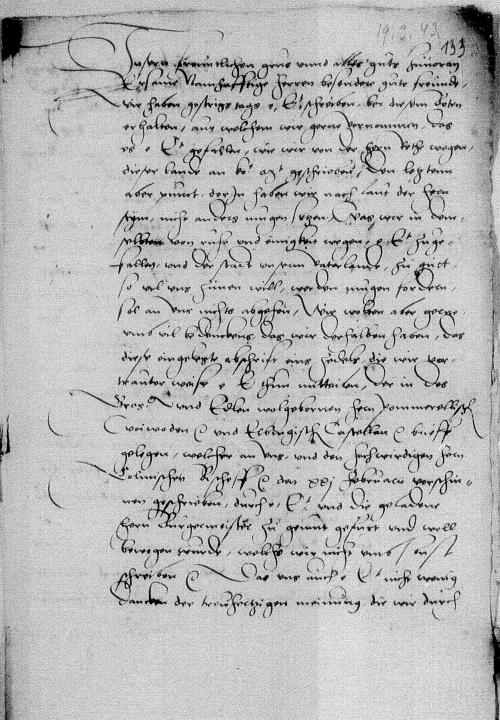 19. 2. 43
133
Unsern freuntlichen grus unnd alles guts zuvoran
Ersame Namhafftige herren besonder gute freunde,
wir haben gestriges tags e. E. schreiben, bei diesem boten
erhalten, aus welchem wir gerne vernommen, das
es e E. gefallen, wie wir von der hern rethe wegen
dieser lande an ko. geschrieben, Den letztenn
aber punct, den haben wir nach laut der hern
stym, nicht anders mugen setzen, Was wir in dem-
selben von ruhe und einigkeit wegen, e. E. zuge-
fallen, und der stadt unserm vaterlande, zu gutt,
so vil uns zimen will, werden mugen fordern,
sol an uns nichts abgehen, Wir wolten aber
umb vil das wir derhalben haben, das
diese eingelegte abschrift eins zedels, die wir ver-
trauter weise e E. thun mitteilen, der in des
Gros. und Edlen wolgebornen hern pommerellisch
woiwoden und Elbingisch Castellan brieff
gelegen, welcher an uns, und den hochwirdigen hern
Colmischen Bischoff den xxj Februarii verschie-
nen geschrieben, durch e. E. und die geladene
hern Burgermeister zu gemut gefurt und woll
bewogen wurde, welchs wir nicht umb sunst
schreiben Das uns auch e E. nicht wenig
dancken der treuhertzigen meinung, die wir durch